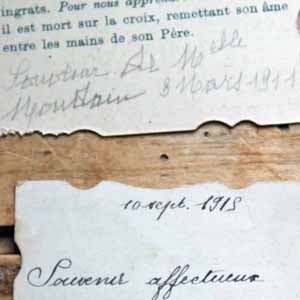 ingrats. Pour nous apprend
il est mort sur la croix, remettant son âme
entre les mains de son Père.
Souvenir de Melle
8 Mars 1911
10 sept. 1915
Souvenir affectueux